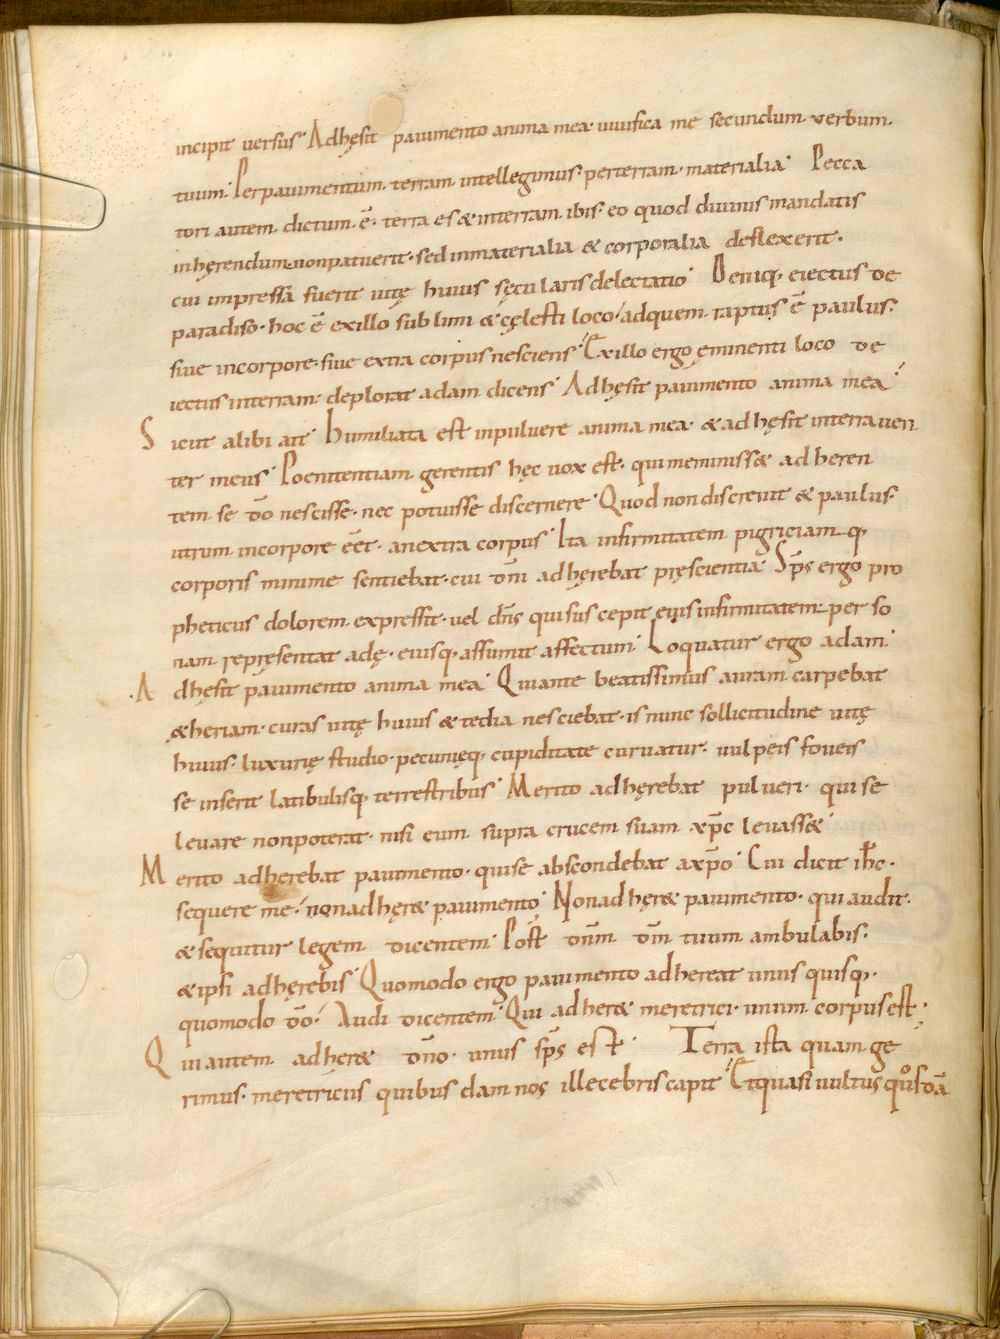 incipit versus· Adhęsit pavimento anima mea vivifica me secundum verbum·
tuum· Perpavimentum terram intellegimus· perterram· materialia· Pecca
tori autem dictum· ē· terra es & interram ibis· eo quod divinis mandatis
inhęrendum nonpataverit· sed inmaterialia & corporalia deflexerit·
cui impressa fuerit vitę huius sęcularis delectatio· Deniq· eiectus de
paradiso· hoc ē exillo sublimi & cęlesti loco· adquem raptus ē paulus·
sive incorpore· sive extra corpus nesciens· Exillo ergo eminenti loco de
iectus interram· deplorat adam dicens· Adhęsit pavimento anima mea·
Sicut alibi ait· Humiliata est inpulvere anima mea· & adhęsit interra ven
ter meus· Poenitentiam gerentis hęc vox est· qui meminiss& adheren
tem se dō nescisse· nec potuisse discernere· Quod non discrevit & paulus·
utrum incorpore eēt· anextra corpus· Ita infirmitatem pigriciam q·
corporis minime sentiebat· cui dm̄ adhęrebat pręscientia· Sp̄s ergo pro
pheticus dolorem expressit· vel dn̄s qui suscepit eius infirmitatem per so
nam repręsentat adę· eiusq· assumit affectum· Loquatur ergo adam·
Adhęsit pavimento anima mea· Qui ante beatissimus auram carpebat
&heriam· curas vitę huius & tedia nesciebat· is nunc sollicitudine vitę
huius· luxurię studio· pecunięq· cupiditate curvatur· vulpeis foveis
se inserit latibulisq· terrestribus· Merito adhęrebat pulveri· qui se
levare nonpoterat· nisi eum supra crucem suam xp̄c levass&·
Merito adherebat pavimento· quise abscondebat axp̄o· Cui dicit ih̄c·
sequere me· nonadhęr& pavimento· Nonadhęr& pavimento· qui audit·
& sequitur legem dicentem· Post dnm̄ dm̄ tuum ambulabis·
& ipsi adhęrebis· Quomodo ergo pavimento adhereat unus quisq·
quomodo dō· Audi dicentem· Qui adher& meretrici· unum corpus est·
Qui autem adher& dn̄o· unus sp̄s est· Terra ista quam ge
rimus· meretricius quibusdam nos illecebris capit· Et quasi vultus quosdā